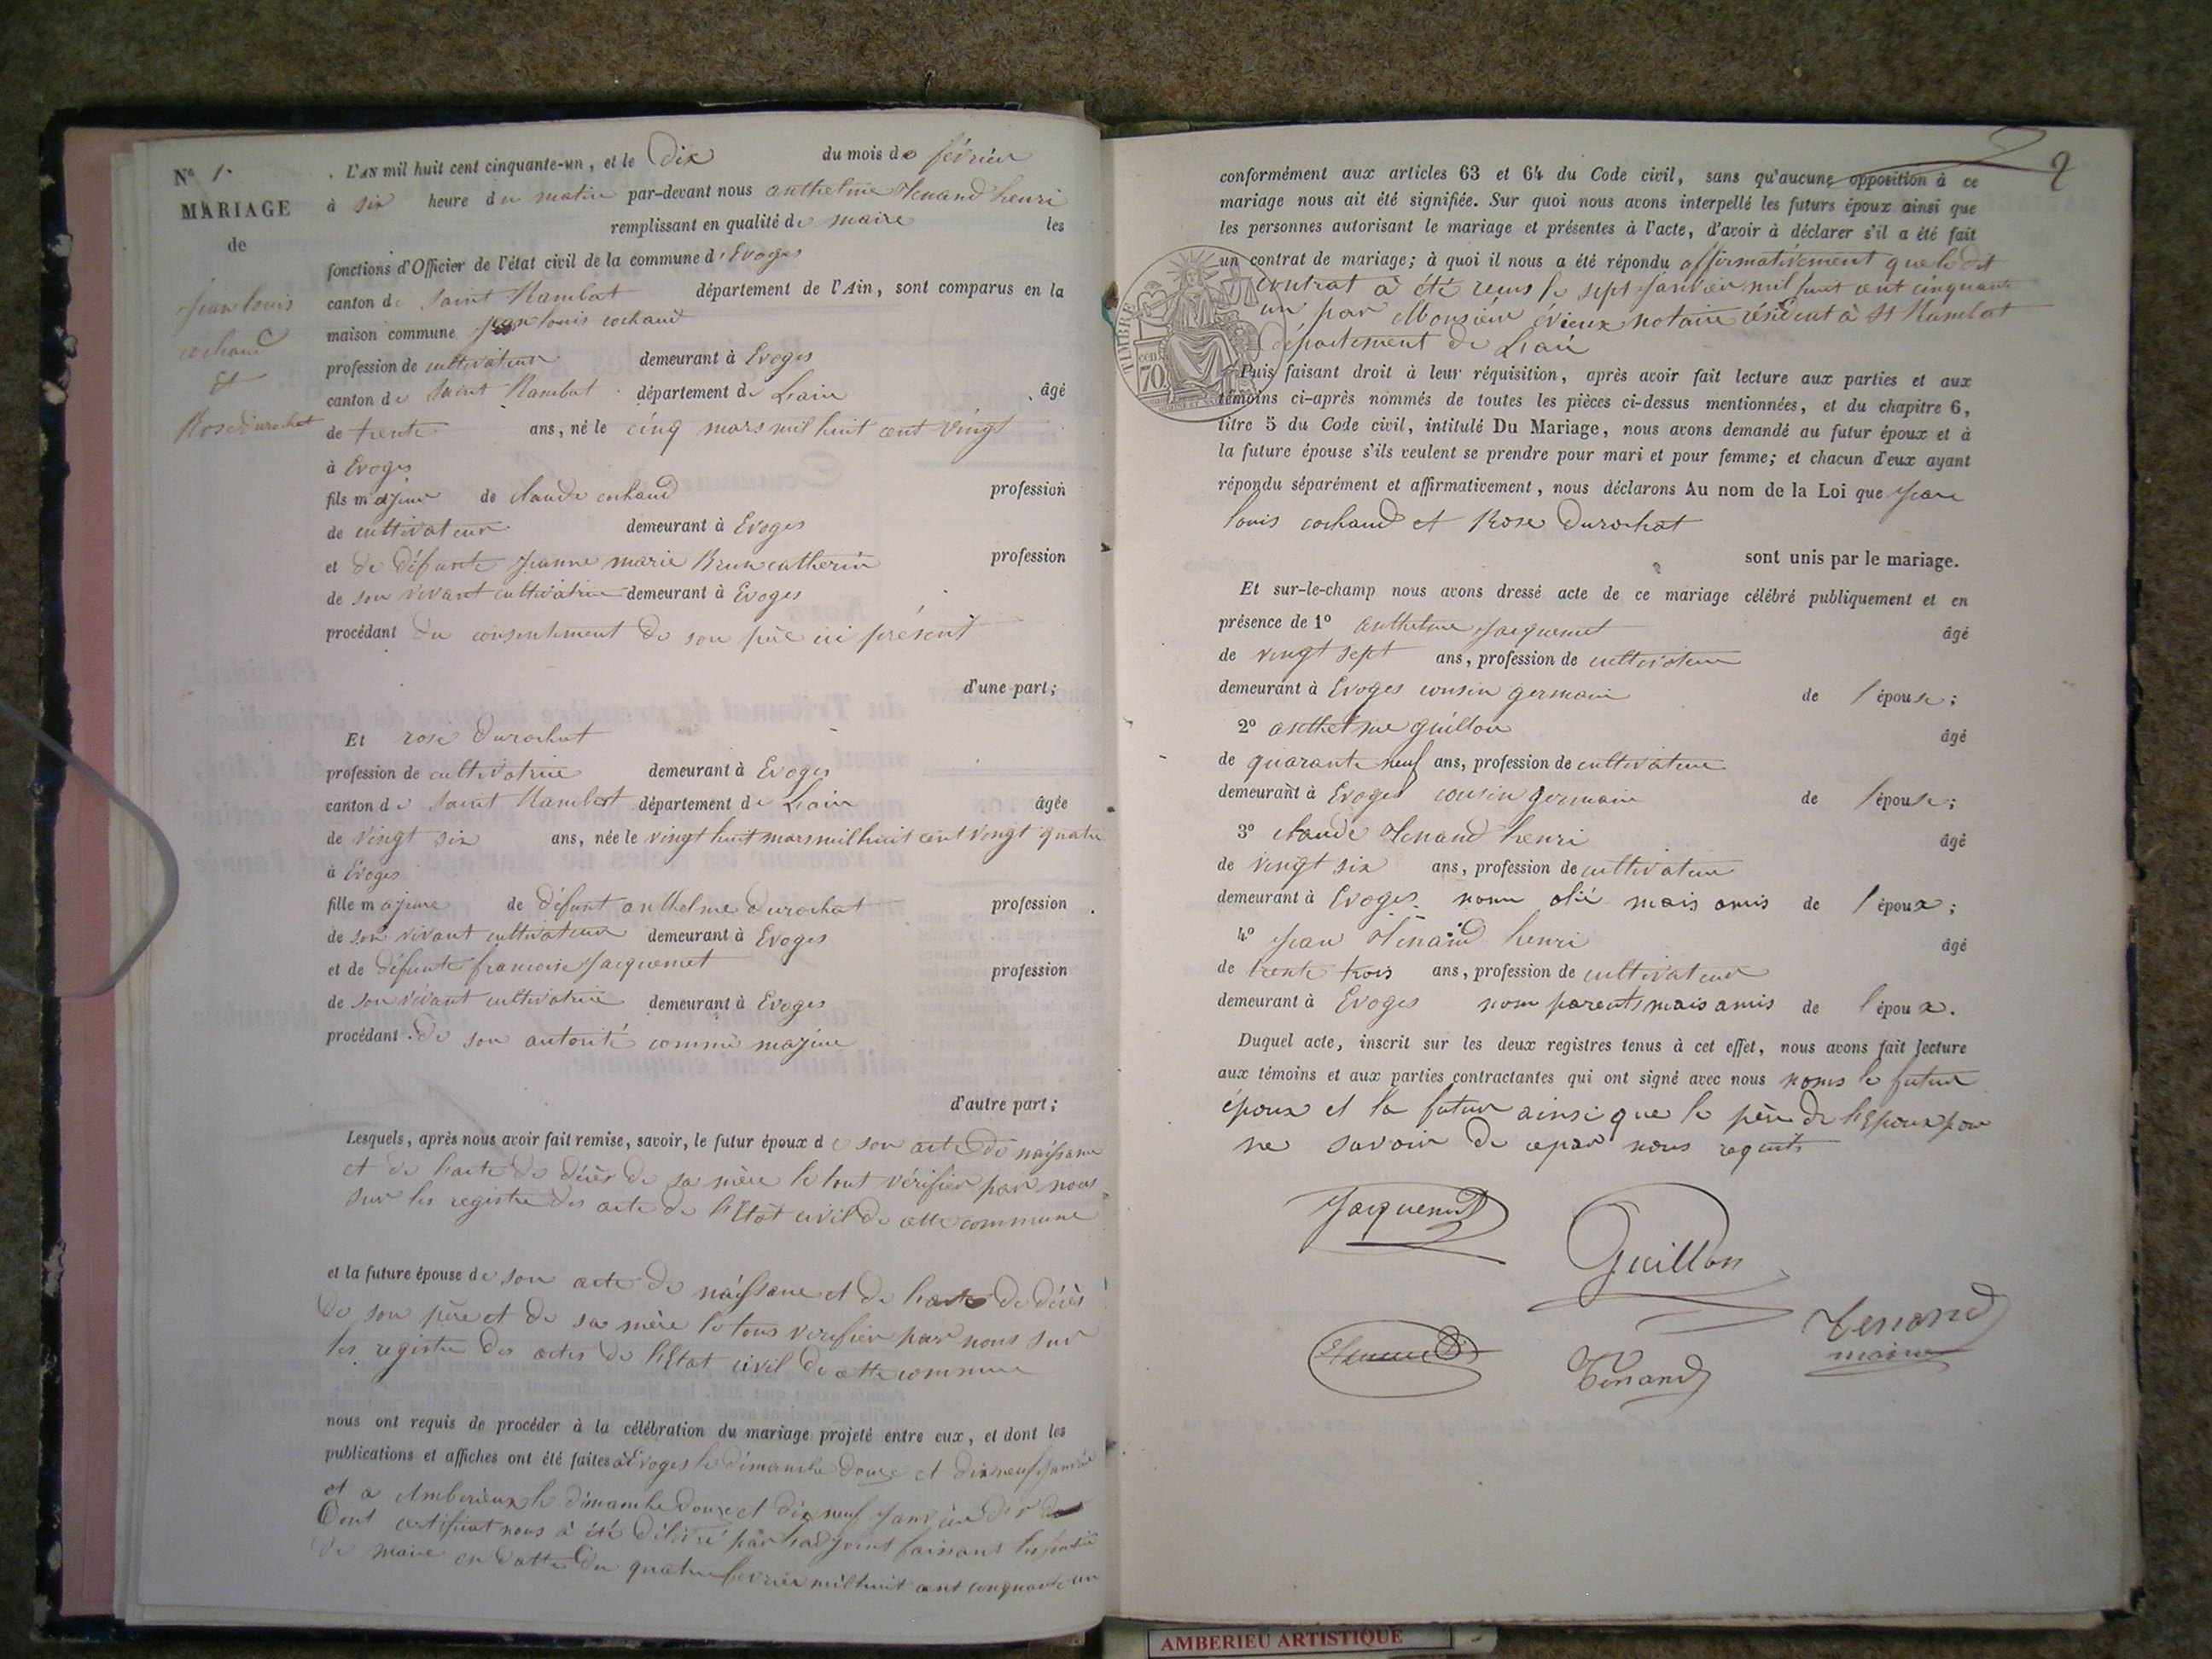 N° 1.
MARIAGE
de
jean louis
cochand
Et
Rose durochat
L'AN mil huit cent cinquante-un, et le Dix du mois de février
à six heure du matin par-devant nous anthelme Tenand henri
remplissant en qualité de maire les
fonctions d'Officier de l'état civil de la commune d'Evoges
canton de Saint Rambert département de l'Ain, sont comparus en la
maison commune jean louis cochand
profession de cultivateur demeurant à Evoges
canton de Saint Rambert département de Lain âgé
de trente ans, né le cinq mars mil huit cent vingt
à Evoges
fils majeur de claude cochand profession
de cultivateur demeurant à Evoges
et de défunte jeanne marie Brun catherin profession
de son vivant cultivatrice demeurant à Evoges
procédant du consentement de son père ici présent
d'une part;
Et rose durochat
profession de cultivatrice demeurant à Evoges
canton de Saint Rambert département de Lain âgée
de vingt six ans, née le vingt huit mars mil huit cent vingt quatre
à Evoges
fille majeure de défunt anthelme durochat profession
de son vivant cultivateur demeurant à Evoges
et de défunte francoise jacquemet profession
de son vivant cultivatrice demeurant à Evoges
procédant de son autorité comme majeure
d'autre part;
Lesquels, après nous avoir fait remise, savoir, le futur époux de son acte de naissance
et de lacte de décès de sa mère le tout vérifier par nous
sur les registre des acte de lEtat civil de cette commune
et la future épouse de son acte de naissance et de lacte de décès
de son père et de sa mère le tous verifier par nous sur
les registre des actes de lEtat civil de cette commune
nous ont requis de procéder à la célébration du mariage projeté entre eux, et dont les
publications et affiches ont été faites à Evoges le dimanche douze et dix neuf janvier
et a Amberieux le dimanche douze et dix neuf janvier
Dont certificat nous à été délivré par ladjoint faisant
de maire en datte du quatre fevrier mil huit cent cinquante un
2
conformément aux articles 63 et 64 du Code civil, sans qu'aucune opposition à ce
mariage nous ait été signifiée. Sur quoi nous avons interpellé les futurs époux ainsi que
les personnes autorisant le mariage et présentes à l'acte, d'avoir à déclarer s'il a été fait
un contrat de mariage; à quoi il nous a été répondu affirmativement que le dit
contrat à été recus le sept janvier mil huit cent cinquante
un par Monsieur évieux notaire résident à St Rambert
département de Lain
TIMBRE
70 cent
Puis faisant droit à leur réquisition, après avoir fait lecture aux parties et aux
témoins ci-après nommés de toutes les pièces ci-dessus mentionnées, et du chapitre 6,
titre 5 du Code civil, intitulé Du Mariage, nous avons demandé au futur époux et à
la future épouse s'ils veulent se prendre pour mari et pour femme; et chacun d'eux ayant
répondu séparément et affirmativement, nous déclarons Au nom de la Loi que jean
louis cochand et Rose durochat
sont unis par le mariage.
Et sur-le-champ nous avons dressé acte de ce mariage célébré publiquement et en
présence de 1° anthelme jacquemet âgé
de vingt sept ans, profession de cultivateur
demeurant à Evoges cousin germain de l'épouse;
2° anthelme guillon âgé
de quarante neuf ans, profession de cultivateur
demeurant à Evoges cousin germain de l'épouse;
3° claude Tenand henri âgé
de vingt six ans, profession de cultivateur
demeurant à Evoges nom alié mais amis de l'époux;
4° jean Tenand henri âgé
de trente trois ans, profession de cultivateur
demeurant à Evoges nom parents mais amis de l'époux.
Duquel acte, inscrit sur les deux registres tenus à cet effet, nous avons fait lecture
aux témoins et aux parties contractantes qui ont signé avec nous noms le futur
époux et la futur ainsi que le père de lEpoux pour
ne savoir de ce par nous requits
Jacquemet
Guillon
Tenand
maire
Tenand
AMBERIEU ARTISTIQUE